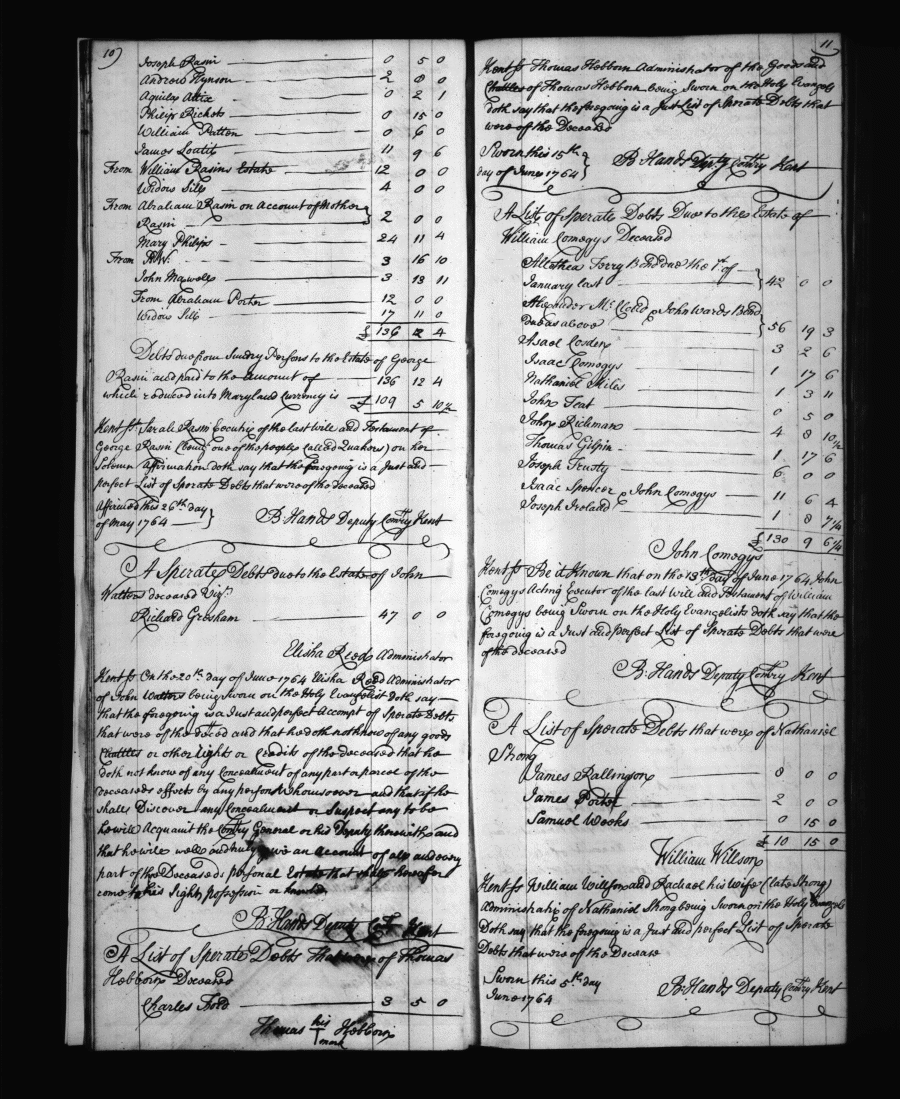 10)
Joseph Rasin 0 5 0
Andrew Hynson 2 0 0
Aquila Attix 0 2 1
Philip Rickets 0 15 0
William Patten 0 6 0
James Loutit 11 9 6
From William Rasins Estate 12 0 0
Widow Sill 4 0 0
From Abraham Rasin on Account of Mother
Rasin 2 0 0
Mary Philips 24 11 4
From R.W. 3 16 10
John Maxwell 3 13 11
From Abraham Porter 12 0 0
Widow Sill 17 11 0
£ 136 2 4
Debts due from Sundry Persons to the Estate of George
Rasin and paid to the amount of 136 12 4
which reduced into Maryland Currency is £ 109 5 10½
Kent ss. Sarah Rasin Executrix of the last will and Testament of
George Rasin (being one of the people called Quakers) on her
Solemn Affirmation doth say that the foregoing is a Just and
perfect List of Sperate Debts that were of the deceased
Affirmed this 26th day
of May 1764 B. Hands Deputy Comry Kent
A Sperate Debts due to the Estate of John
Watters deceased Vizt.
Richard Gresham 47 0 0
Elisha Reed Administrator
Kent ss On the 20th day of June 1764 Elisha Reed Administrator
of John Watters being Sworn on the Holy Evangelist doth say
that the foregoing is a Just and perfect Accompt of Sperate Debts
that were of the deced and that he doth not know of any goods
Chattles or other Rights or Credits of the deceased that he
doth not know of any Concealment of any part or parcel of the
deceaseds effects by any person Whomsoever and that if he
shall Discover any Concealment or Suspect any to be
he will Acquaint the Comry General or his Deputy therewith and
that he will well and truly give an Account of all and every
part of the Deceaseds personal Estate that shall hereafter
come to his Sight, possession or
B. Hands Deputy Comry Kent
A List of Sperate Debts that were of Thomas
Hebborn Deceased
Charles Ford 3 5 0
Thomas his T mark Hebborn
11
Kent ss Thomas Hebborn Administrator of the Goods and
Chattles of Thomas Hebborn being Sworn on the Holy Evangels
doth say that the foregoing is a Just List of Sperate Debts that
were of the Deceased
Sworn this 15th
day of June 1764 B. Hands Depty Comry Kent
A List of Sperate Debts Due to the Estate of
William Comegys Deceased
Allethea Terry Bond due the 1st of
January last 42 0 0
Alexander McCledd & John Wards Bond
due as above 56 19 3
Asael Cosden 3 2 6
Isaac Comegys 1 17 6
Nathaniel Miles 1 3 11
John Teat 0 5 0
John Rickman 4 8 10½
Thomas Gilpin 1 17 6
Joseph Trusty 6 0 0
Isaac Spencer & John Comegys 11 6 4
Joseph Ireland 1 8 7¼
£ 130 9 6¼
John Comegys
Kent ss Be it Known that on the 13th day of June 1764 John
Comegys Acting Executor of the last will and Testament of William
Comegys being Sworn on the Holy Evangelists doth say that the
foregoing is a Just and perfect List of Sperate Debts that were
of the deceased
B. Hands Deputy Comry Kent
A List of Sperate Debts that were of Nathaniel
Strong
James Rallingson 8 0 0
James Porter 2 0 0
Samuel Weeks 0 15 0
£ 10 15 0
William Willson
Kent ss William Willson and Rachael his Wife (late Strong)
Administratrix of Nathaniel Strong being Sworn on the Holy Evangels
Doth say that the foregoing is a Just and perfect List of Sperate
Debts that were of the Decease
Sworn this 5th day
June 1764 B. Hands Deputy Comry Kent